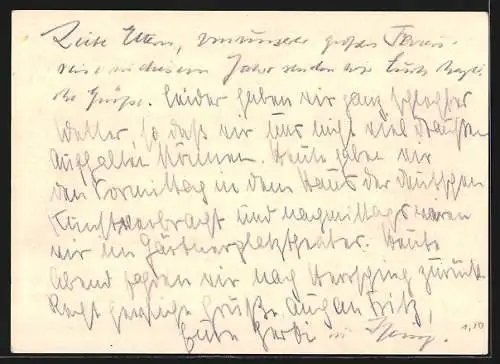 Liebe Eltern, von unserer großen Ferien-
reise in diesem Jahr senden wir Euch herzli-
che Grüße. Leider haben wir ganz schlechtes
Wetter, so daß wir uns nicht viel draußen
aufhalten können. Heute haben wir
den Vormittag in dem Haus der deutschen
Kunst verbracht und nachmittags waren
wir im Gärtnerplatztheater. Heute
Abend fahren wir nach Herrsching zurück.
Recht herzliche Grüße, auch an Fritz,
Eure Gerdi
1,50